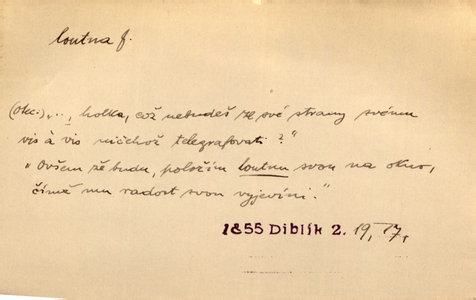 loutna f.
(Okc:) „..., holka, což nebudeš ze své strany svému
vis à vis ničehož telegrafovati?"
„Ovšem že budu, položím loutnu svou na okno,
čímž mu radost svou vyjevím."
1855 Diblík 2. 19, 17,